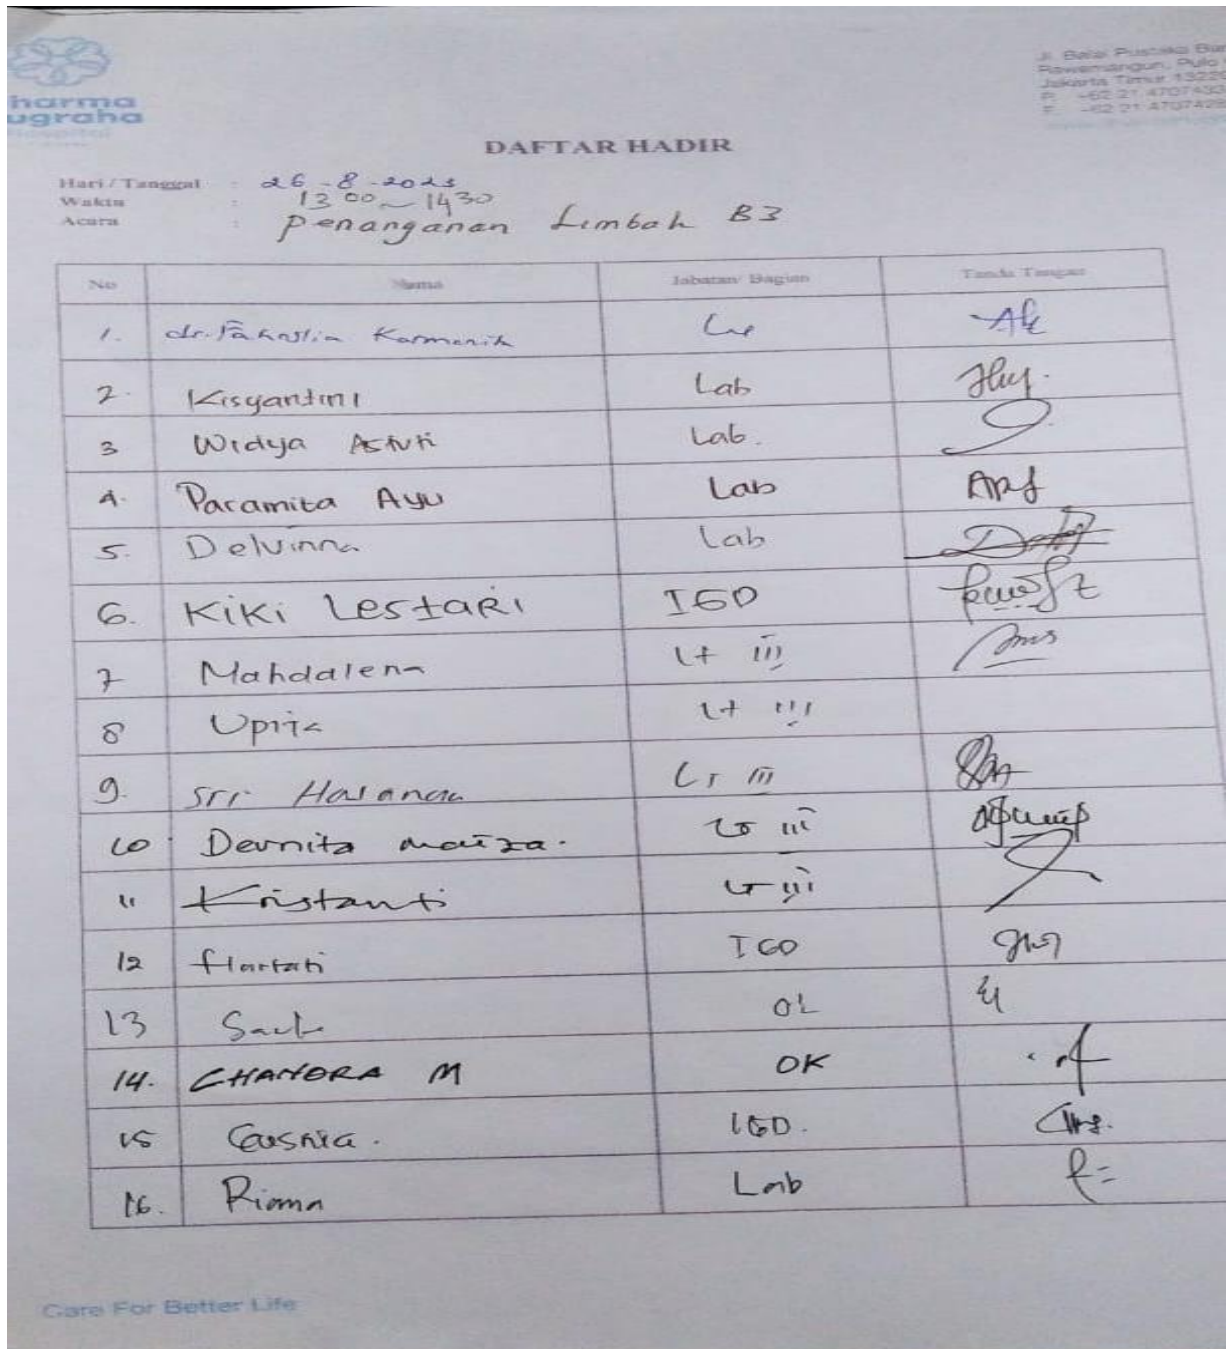 harma
ugraha
Hospital
Jl. Balai Pustaka Bar
Rawamangun, Pulo
Jakarta Timur 13220
P. +62 21 4707433
F. +62 21 4707428
DAFTAR HADIR
Hari / Tanggal : 26 - 8 - 2023
Waktu : 13 00 ~ 1430
Acara : Penanganan Limbah B3
No Nama Jabatan/ Bagian Tanda Tangan
1. dr.
2. Kisyantini Lab
3 Widya Astuti Lab.
4. Paramita Ayu Lab
5. Delvinna Lab
6. Kiki Lestari IGD
7 Mahdalena Lt III
8 Lt III
9. Sri Lt III
10 Dernita Lt III
11 Kristanti Lt III
12 Hartati IGD
13
14. CHANDRA M OK
15 IGD.
16. Riama Lab
Care For Better Life